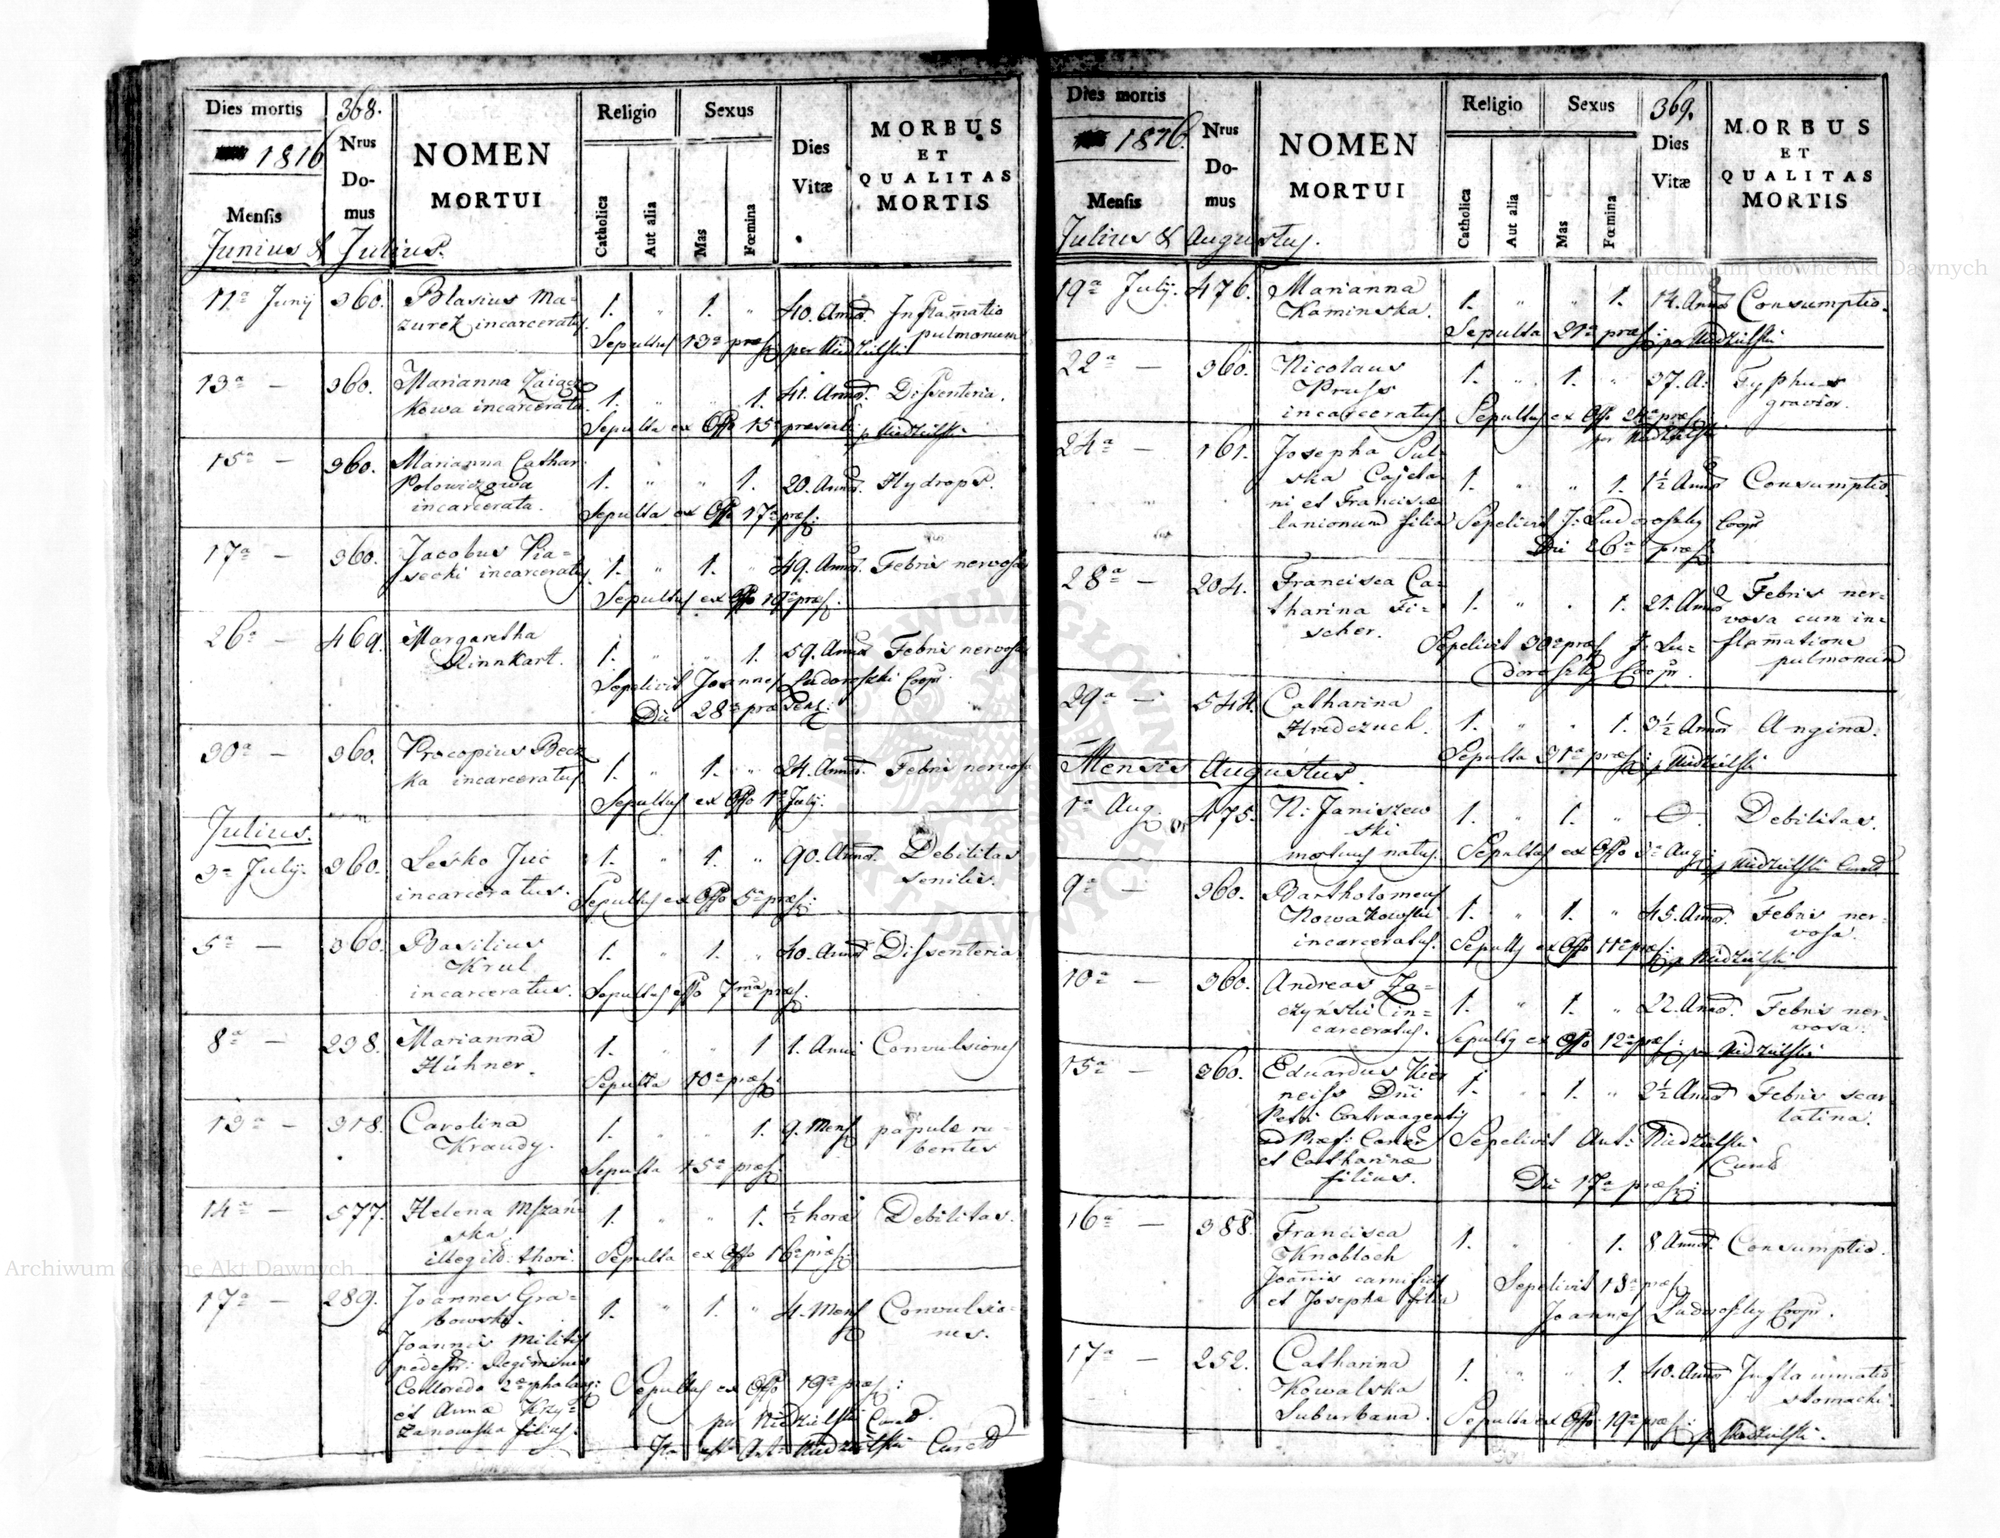 Dies mortis
368.
1816
Nrus
Do-
mus
NOMEN
MORTUI
Religio
Sexus
Catholica
Aut alia
Mas
Fœmina
Dies
Vitæ
MORBUS
ET
QUALITAS
MORTIS
Mensis
Junius & Julius.
11ª Junij 360. Blasius Ma-
zurek incarceratus 1. " 1. " 40. Annor. Inflam̃atio
pulmonum
Sepultus 13ª præs. per Niedzielski
13ª — 360. Marianna
kowa incarcerata 1. " " 1. 41. Annor. Dissenteria.
Sepulta ex Offo 15ª præsentis p Niedzielski
15ª — 360. Marianna Cathar.
Polowiczowa
incarcerata. 1. " " 1. 20. Annor. Hydrops.
Sepulta ex Offo 17ª præs:
17ª — 360. Jacobus Pia-
secki incarceratus 1. " 1. " 49. Annor. Febris nervosa
Sepultus ex Offo 19ª præs:
26ª — 469. Margaretha
Rinnkart. 1. " " 1. 59. Annor. Febris nervosa
Sepelivit Joannes Ludorofski Coopr
Die 28ª præsens:
30ª — 360. Procopius Becz
ka incarceratus 1. " 1. " 24. Annor. Febris nervosa
Sepultus ex Offo 1ª July.
Julius.
3ª July. 360. Lesko Juc
incarceratus. 1. " 1. " 90. Annor. Debilitas
senilis.
Sepultus ex Offo 5ª præs:
5ª — 360. Basilius
Krul
incarceratus. 1. " 1. " 40. Annor Dissenteria
Sepultus ex Offo 7ma præs.
8ª — 238. Marianna
Hühner. 1. " " 1 1. Anni Convulsiones
Sepulta 10ª præs:
13ª — 318. Carolina
Kraudy. 1. " " 1. 9. Mens papulæ ru-
bentes
Sepulta 15ª præs:
14ª — 577. Helena Mszań-
ska
illegit: thori. 1. " " 1. ½ horæ Debilitas.
Sepulta ex Offo 16ª præs:
17ª — 289. Joannes Gra-
bowski.
Joannis Militis
pedestr: Regiminis
Colloredo 2æ phalang:
et Annæ Krzy-
zanowska filius. 1. " 1. " 4. Mens Convulsio-
nes.
Sepultus ex Offo 19ª præs:
per Niedzielski Curat.
Ant: Niedzielski Curat
Dies mortis
369.
1816.
Nrus
Do-
mus
NOMEN
MORTUI
Religio
Sexus
Catholica
Aut alia
Mas
Fœmina
Dies
Vitæ
MORBUS
ET
QUALITAS
MORTIS
Mensis
Julius & Augustus.
19ª July. 476. Marianna
Kaminska. 1. " " 1. 14. Annor Consumptio.
Sepulta 21ª præs: per Niedzielski
22ª — 360. Nicolaus
Pruss
incarceratus. 1. " 1. " 37. A. Typhus
gravior.
Sepultus ex Offo 24ª præs:
per Niedzielski
24ª — 161. Josepha Pul-
ska Cajeta-
ni et Franciscæ
lanionum filia 1. " " 1. 1½ Annor Consumptio.
Sepelivit J: Ludorofsky Coopr
Die 26ª præs.
28ª — 204. Francisca Ca-
tharina Fi-
scher. 1. " . 1. 21. Annor Febris ner-
vosa cum in-
flam̃atione
pulmonum
Sepelivit 30ª præs J: Lu-
dorofsky Coopr.
29ª — 544. Catharina
Hredczuch. 1. " " 1. 3½ Annor Angina.
Sepulta 31ª præs: p Niedzielski
Mensis Augustus.
1ª Aug 475. N: Janiszew
ski
mortuus natus. 1. " 1. " Debilitas.
Sepultus ex Offo 3ª Aug: p Niedzielski Curat
9ª — 360. Bartholomeus
Nowakowski
incarceratus. 1. " 1. " 45. Annor. Febris ner-
vosa.
Sepultus ex Offo 11ª præs: p Niedzielski
10ª — 360. Andreas Za-
czyński in-
carceratus. 1. " 1. " 22. Annor. Febris ner-
vosa.
Sepultus ex Offo 12ª præs: per Niedzielski
15ª — 360. Eduardus
Dñi
Petri Contraagentis
ad Præf: Carcer
et Catharinæ
filius. 1. " 1. " 2½ Annor Febris scar-
latina.
Sepelivit Ant: Niedzielski
Curat
Die 17ª præs:
16ª — 388. Francisca
Knobloch
Joañis carnificis
et Josephæ filia 1. " " 1. 8 Annor. Consumptio.
Sepelivit 18ª præs
Joannes Ludorofsky Coopr.
17ª — 252. Catharina
Kowalska
Suburbana. 1. " " 1. 40. Annor Inflammatio
stomachi.
Sepulta ex Offo. 19ª præs: p Niedzielski.
Archiwum Główne Akt Dawnych
Archiwum Główne Akt Dawnych
ARCHIWUM GŁÓWNE AKT DAWNYCH